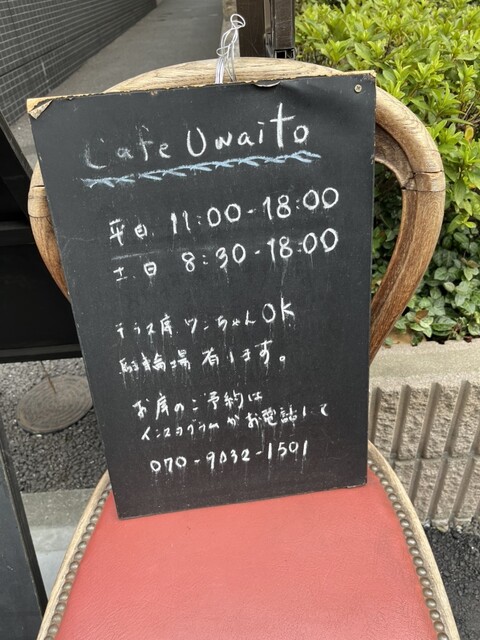 Cafe Unaito
平日 11:00-18:00
土.日 8:30-18:00
テラス席.ワンちゃんOK
駐輪場有ります。
お席のご予約は
インスタグラムかお電話にて
070-9032-1501